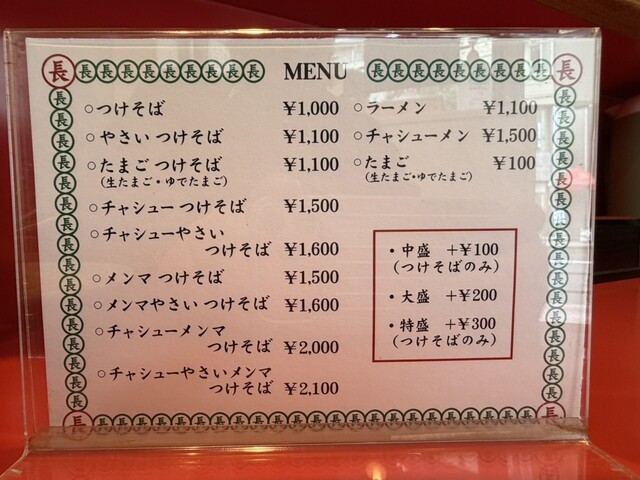 MENU
○つけそば ¥1,000
○やさい つけそば ¥1,100
○たまご つけそば ¥1,100
(生たまご・ゆでたまご)
○チャシュー つけそば ¥1,500
○チャシューやさい
つけそば ¥1,600
○メンマ つけそば ¥1,500
○メンマやさい つけそば ¥1,600
○チャシューメンマ
つけそば ¥2,000
○チャシューやさいメンマ
つけそば ¥2,100
○ラーメン ¥1,100
○チャシューメン ¥1,500
○たまご ¥100
(生たまご・ゆでたまご)
・中盛 +¥100
(つけそばのみ)
・大盛 +¥200
・特盛 +¥300
(つけそばのみ)